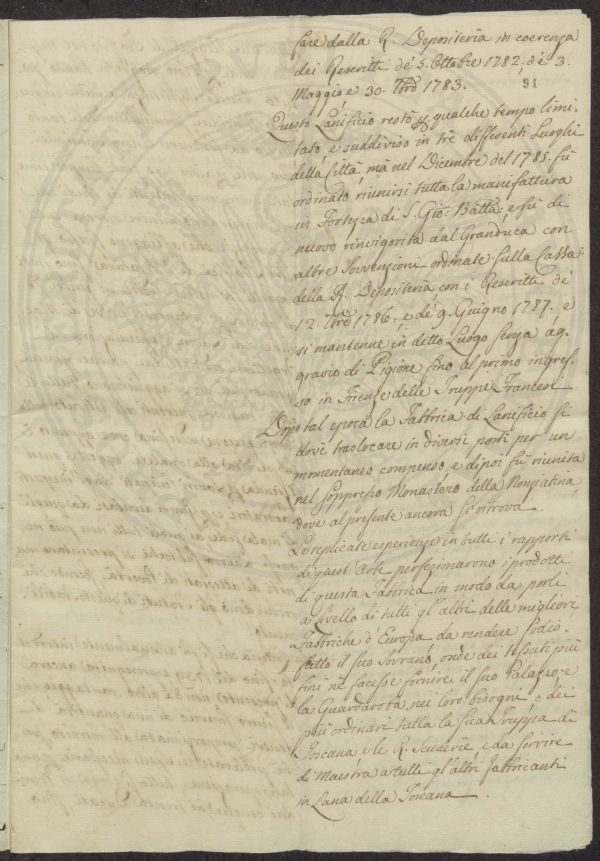 fare dalla R. Depositeria in coerenza
dei Rescritti de' 5. Ottobre 1782; de' 3.
Maggio e 30. 7bre 1783.
91
Questo Lanificio restò per qualche tempo limi-
tato, e suddiviso in trè differenti Luoghi
della Città, mà nel Dicembre del 1785. fù
ordinato riunirsi tutta la manifattura
in Fortezza di S. Gio: Batta: e fù di
nuovo rinvigorita dal Granduca con
altre Sovvenzioni ordinate sulla Cassa
della R. Depositeria con i Rescritti de'
12. 7bre 1786, e de' 9. Giugno 1787. e
si mantenne in detto Luogo senza ag-
gravio di Pigione fino al primo ingres-
so in Firenze delle Truppe Francesi
Dopo tal epoca la Fabbrica di Lanificio si
dovè traslocare in diversi posti per un
momentaneo compenso e di poi fù riunita
nel soppresso Monastero della
dove al presente ancora si ritrova.
Le replicate esperienze in tutti i rapporti
di quest'Arte perfezionarono i prodotti
di questa Fabbrica in modo da porli
a livello di tutti gl'altri delle migliori
Fabbriche d'Europa da rendere sodis-
fatto il suo Sovrano, onde dei tessuti più
fini ne facesse fornire il suo Palazzo, e
la Guardaroba nei loro bisogni e dei
più ordinari tutta la sua Truppa di
Toscana e le R. Scuderie, e da servire
di Maestra a tutti gl'altri Fabbricanti
in Lana della Toscana.